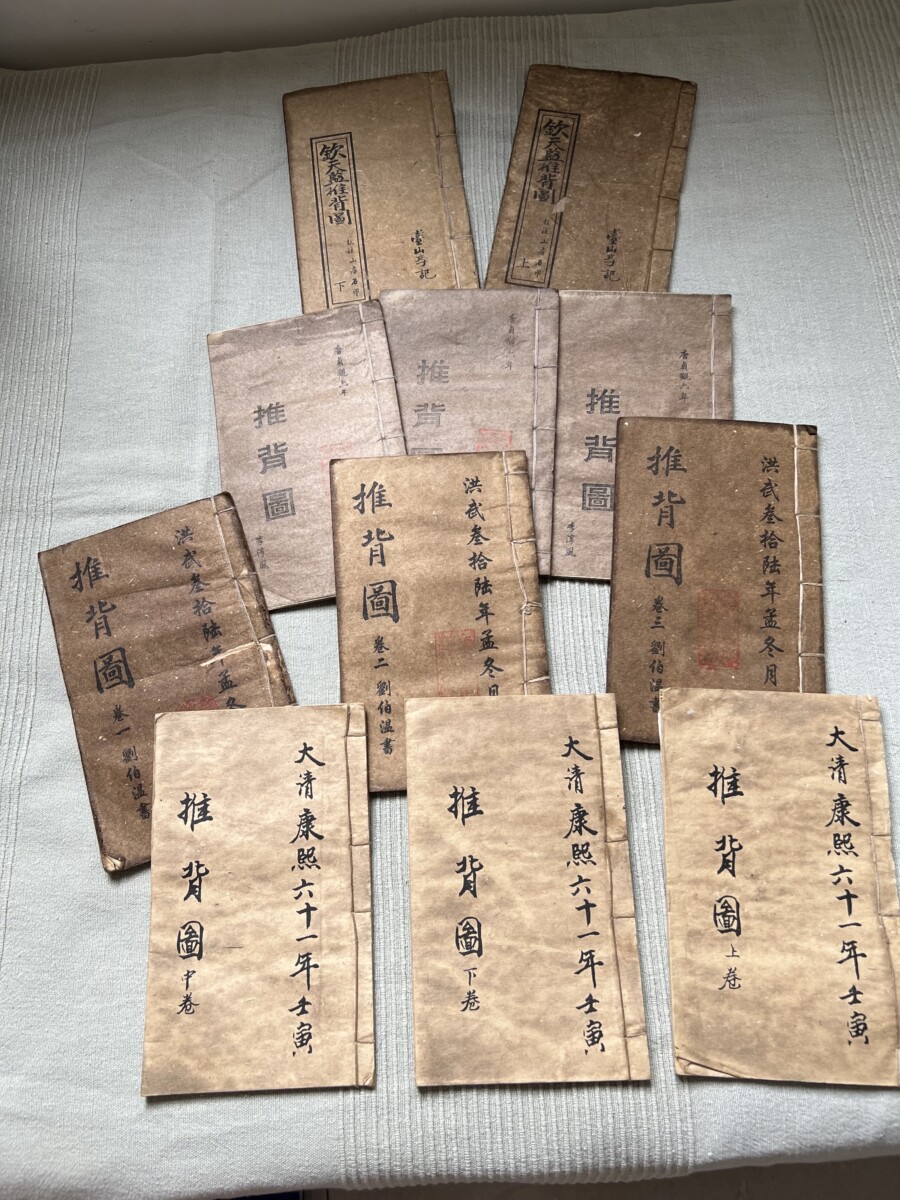 欽天監推背圖
下
欽天監推背圖
上
推背圖
李淳風
推背圖
推背圖
洪武叁拾陸年孟冬
推背圖 卷一 劉伯温書
洪武叁拾陸年孟冬月
推背圖 卷二 劉伯温書
洪武叁拾陸年孟冬月
推背圖 卷三 劉伯温書
大清康熙六十一年壬寅
推背圖 中卷
大清康熙六十一年壬寅
推背圖 下卷
大清康熙六十一年壬寅
推背圖 上卷